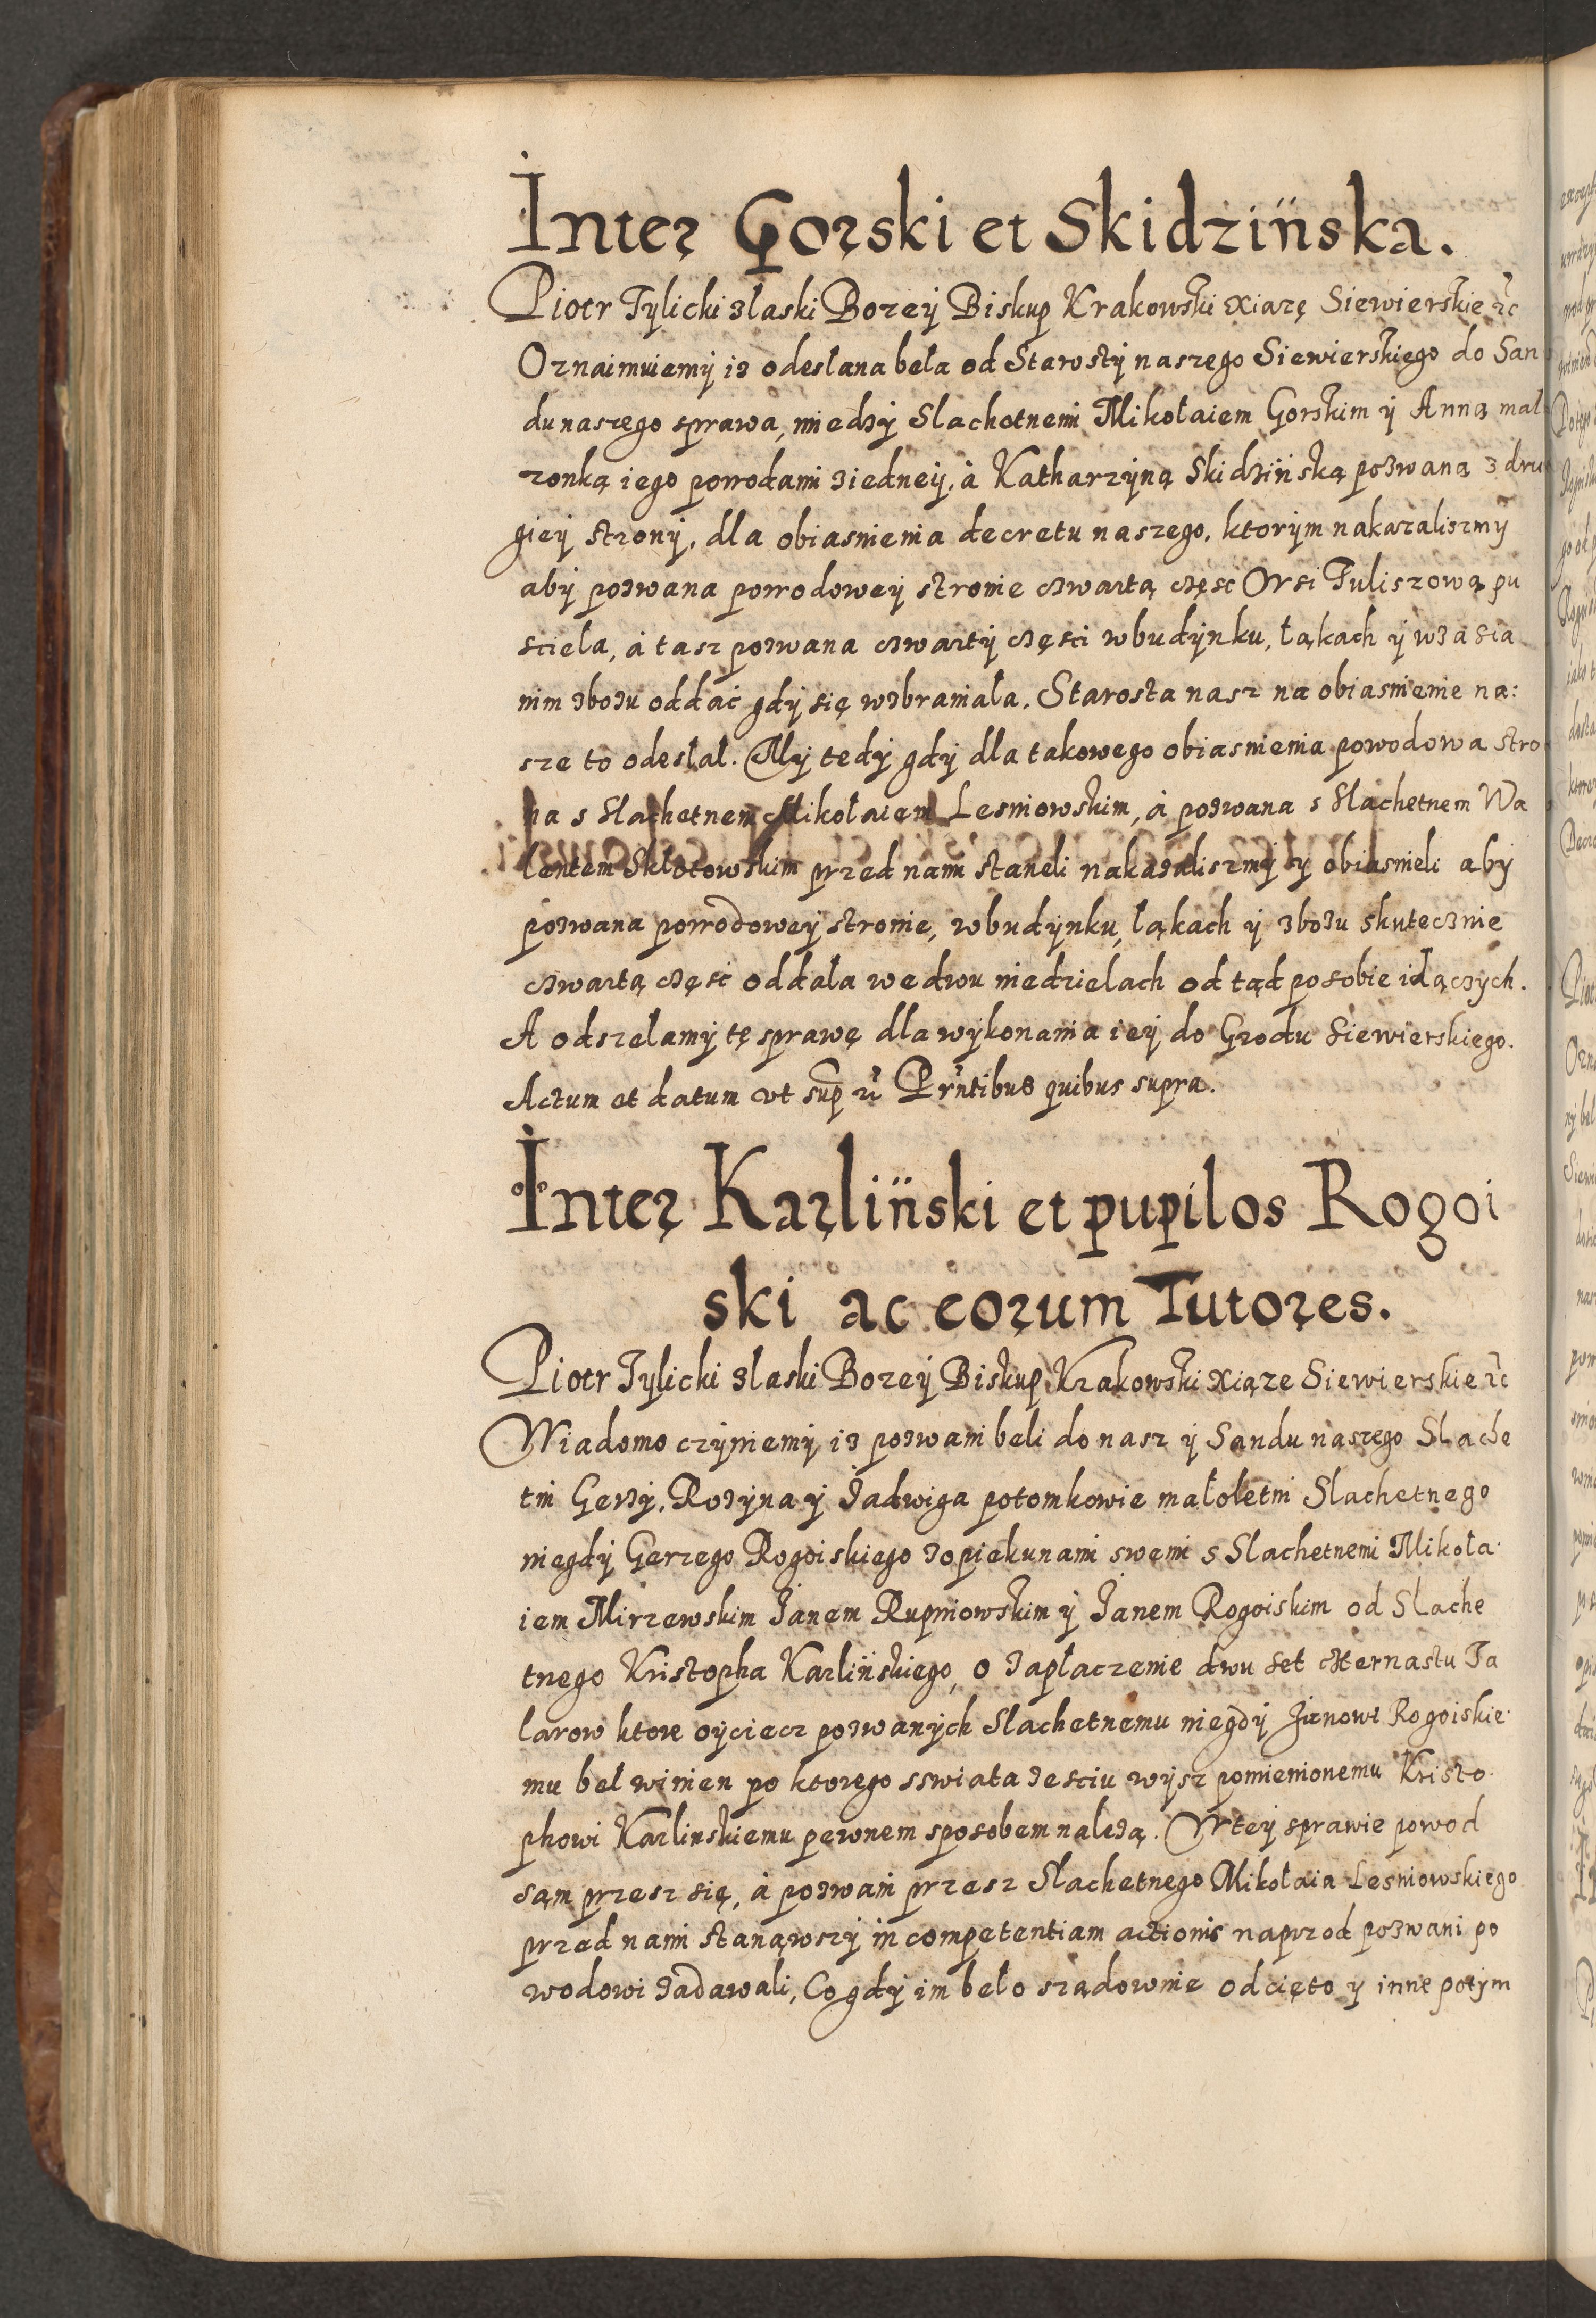 Inter Gorski et Skidzińska.
Piotr Tylicki z laski Bozey Biskup Krakowski Xiazę Siewierskie etc
Oznaimuiemy iz odesłana beła od Starosty naszego Siewierskiego do San
du naszego sprawa, miedzy Slachetnemi Mikołaiem Gorskim y Anną mał
zonką iego powodami z iedney, à Katharzyną Skidzińską pozwaną z dru
giey strony, dla obiasnienia decretu naszego, ktorym nakazaliszmy
aby pozwana powodowey stronie czwartą częsc Wsi Tuliszową pu
sciela, à tasz pozwana czwarty częsci w budynku, łąkach y w zasia
nim zbozu oddać gdy się wzbraniała, Starosta nasz na obiasnienie na:
sze to odesłał. My tedy gdy dla takowego obiasnienia powodowa stro
na s Slachetnem Mikołaiem Lesniowskim, à pozwana s Slachetnem Wa
lentem Sklotowskim przed nami staneli nakazaliszmy y obiasnieli aby
pozwana powodowey stronie, w budynku, łąkach y zbozu skutecznie
czwartą częsc oddała we dwu niedzielach od tąd po sobie idączych.
A odszełamy tę sprawę dla wykonania iey do Grodu Siewierskiego.
Actum et datum vt sup etc Prntibus quibus supra.
Inter Karliński et pupilos Rogoi
ski ac eorum Tutores.
Piotr Tylicki z laski Bozey Biskup Krakowski Xiąze Siewierskie etc
Wiadomo czyniemy iz pozwani beli do nasz y Sandu naszego Slache
tni Gerzy, Rozyna y Jadwiga potomkowie małoletni Slachetnego
niegdy Gerzego Rogoiskiego z opiekunami swemi s Slachetnemi Mikoła
iem Mirzewskim Janem Rupniowskim y Janem Rogoiskim od Slache
tnego Kristopha Karlińskiego, o zapłaczenie dwu set czternastu Ta
larow ktore oyciecz pozwanych Slachetnemu niegdy Janowi Rogoiskie
mu beł winien po ktorego s swiata zesciu wysz pomienionemu Kristo
phowi Karlinskiemu pewnem sposobem nalezą. W tey sprawie powod
sąm przesz się, à pozwani przesz Slachetnego Mikołaia Lesniowskiego
przed nami stanąwszy incompetentiam actionis naprzod pozwani po
wodowi zadawali, Co gdy im beło sządownie odcięto y inne potym